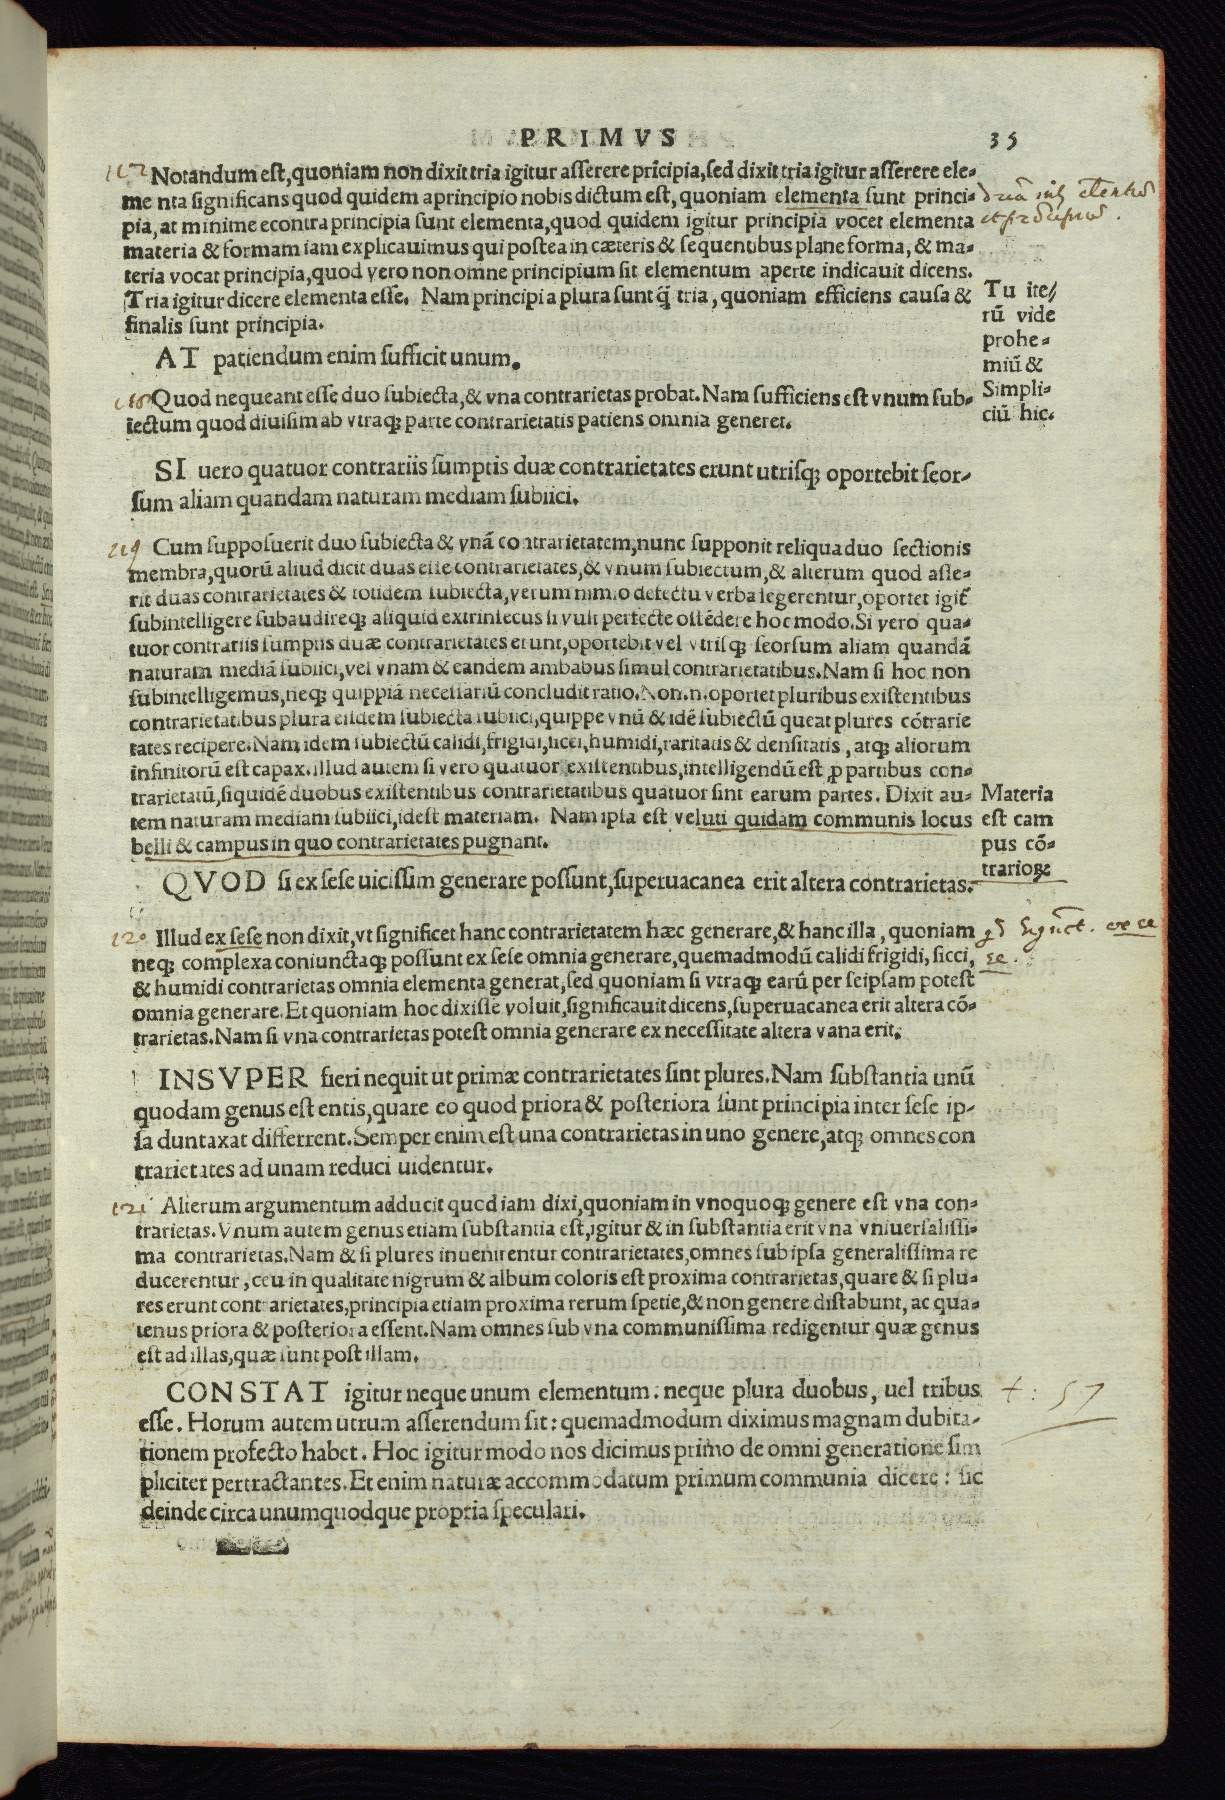 PRIMVS 35
117 Notandum est,quoniam non dixit tria igitur asserere prīcipia,sed dixit tria igitur asserere ele-
me nta significans quod quidem aprincipio nobis dictum est, quoniam elementa sunt princi-
pia,at minime econtra principia sunt elementa,quod quidem igitur principia vocet elementa
materia & formam iam explicauimus qui postea in cæteris & sequentibus plane forma, & ma-
teria vocat principia,quod vero non omne principium sit elementum aperte indicauit dicens.
Tria igitur dicere elementa esse. Nam principia plura sunt q̃ tria, quoniam efficiens causa &
finalis sunt principia.
Tu ite/
rū vide
prohe-
miū &
Simpli-
ciū hic.
AT patiendum enim sufficit unum.
118 Quod nequeant esse duo subiecta,& vna contrarietas probat. Nam sufficiens est vnum sub-
iectum quod diuisim ab vtraq; parte contrarietatis patiens omnia generet.
SI uero quatuor contrariis sumptis duæ contrarietates erunt utrisq; oportebit seor-
sum aliam quandam naturam mediam subiici.
119 Cum supposuerit duo subiecta & vnā contrarietatem,nunc supponit reliqua duo sectionis
membra,quorū aliud dicit duas esse contrarietates,& vnum subiectum,& alterum quod asse-
rit duas contrarietates & totidem subiecta,verum nimio defectu verba legerentur,oportet igit̃
subintelligere subaudireq; aliquid extrinsecus si vult perfecte ostēdere hoc modo. Si vero qua-
tuor contrariis sumptis duæ contrarietates erunt,oportebit vel vtrisq; seorsum aliam quandā
naturam mediā subiici,vel vnam & eandem ambabus simul contrarietatibus. Nam si hoc non
subintelligemus,neq; quippiā necessariū concludit ratio. Non.n.oportet pluribus existentibus
contrarietatibus plura eisdem subiecta subiici,quippe vnū & idē subiectū queat plures cōtrarie
tates recipere. Nam idem subiectū calidi,frigidi,sicci,humidi,raritatis & densitatis, atq; aliorum
infinitorū est capax. illud autem si vero quatuor existentibus,intelligendū est ꝓ partibus con-
trarietatū,siquidē duobus existentibus contrarietatibus quatuor sint earum partes. Dixit au-
tem naturam mediam subiici,idest materiam. Nam ipsa est veluti quidam communis locus
belli & campus in quo contrarietates pugnant.
Materia
est cam
pus cō-
trarioꝝ
QVOD si ex sese uicissim generare possunt,superuacanea erit altera contrarietas.
120 Illud ex sese non dixit,vt significet hanc contrarietatem hæc generare,& hanc illa, quoniam
neq; complexa coniunctaq; possunt ex sese omnia generare,quemadmodū calidi frigidi, sicci,
& humidi contrarietas omnia elementa generat,sed quoniam si vtraq; earū per seipsam potest
omnia generare. Et quoniam hoc dixisse voluit,significauit dicens,superuacanea erit altera cō-
trarietas. Nam si vna contrarietas potest omnia generare ex necessitate altera vana erit.
INSVPER fieri nequit ut primæ contrarietates sint plures. Nam substantia unū
quodam genus est entis,quare eo quod priora & posteriora sunt principia inter sese ip-
sa duntaxat differrent. Semper enim est una contrarietas in uno genere,atq; omnes con
trarietates ad unam reduci uidentur.
121 Alterum argumentum adducit quod iam dixi,quoniam in vnoquoq; genere est vna con-
trarietas. Vnum autem genus etiam substantia est,igitur & in substantia erit vna vniuersalissi-
ma contrarietas. Nam & si plures inuenirentur contrarietates,omnes sub ipsa generalissima re
ducerentur, ceu in qualitate nigrum & album coloris est proxima contrarietas,quare & si plu-
res erunt contrarietates,principia etiam proxima rerum spetie,& non genere distabunt, ac qua-
tenus priora & posteriora essent. Nam omnes sub vna communissima redigentur quæ genus
est ad illas,quæ sunt post illam.
CONSTAT igitur neque unum elementum. neque plura duobus, uel tribus
esse. Horum autem utrum asserendum sit: quemadmodum diximus magnam dubita-
tionem profecto habet. Hoc igitur modo nos dicimus primo de omni generatione sim
pliciter pertractantes. Et enim naturæ accommodatum primum communia dicere: sic
deinde circa unumquodque propria speculari.
t: 57